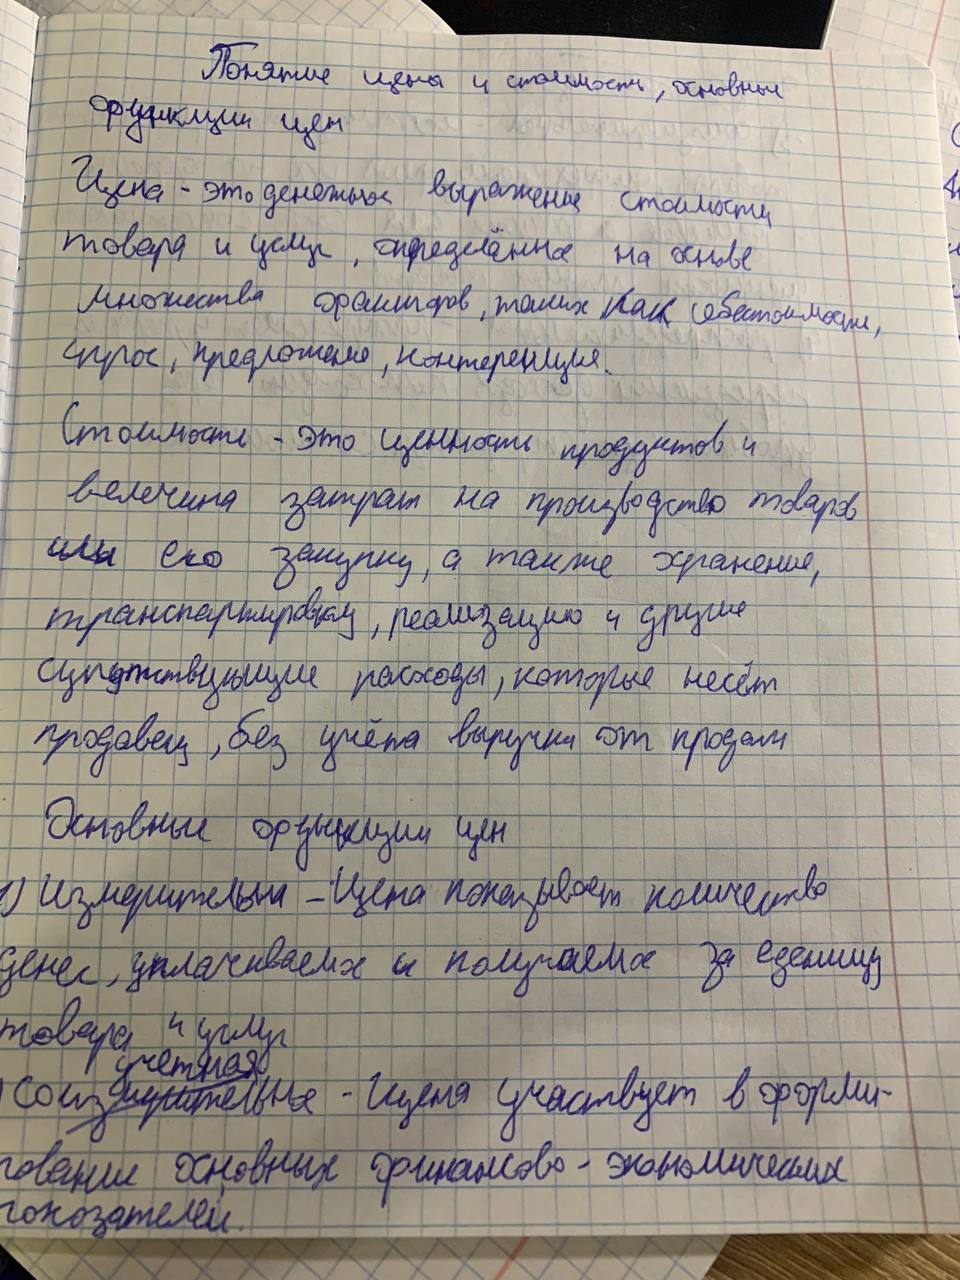 Понятие цены и стоимость, основные
функции цен
Цена - это денежное выражение стоимости
товара и услуг, определённое на основе
множества факторов, таких как себестоимость,
спрос, предложение, контеренция.
Стоимость - это ценность продуктов и
велечина затрат на производство товаров
или его закупку, а также хранение,
транспартировку, реализацию и другие
сопутствующие расходы, которые несёт
продавец, без учёта выручки от продаж
Основные функции цен
1) Измерительная - Цена показывает количество
денег, уплачиваемых и получаемых за еденицу
товара и услуг
учетная
) Соизмерительная - Цена участвует в форми-
ровании основных финансово - экономических
показателей.